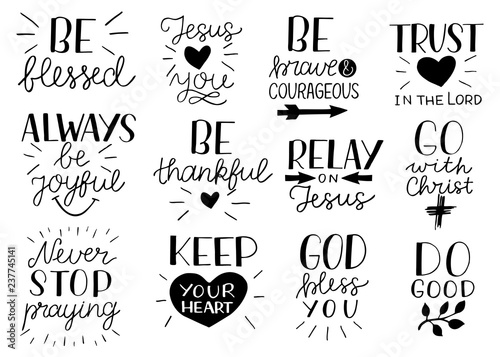 BE
blessed
Jesus
you
BE
brave &
COURAGEOUS
TRUST
IN THE LORD
ALWAYS
be
joyful
BE
thankful
RELAY
ON
Jesus
GO
with
Christ
Never
STOP
praying
KEEP
YOUR
HEART
GOD
bless
YOU
DO
GOOD
Adobe Stock | #237745141